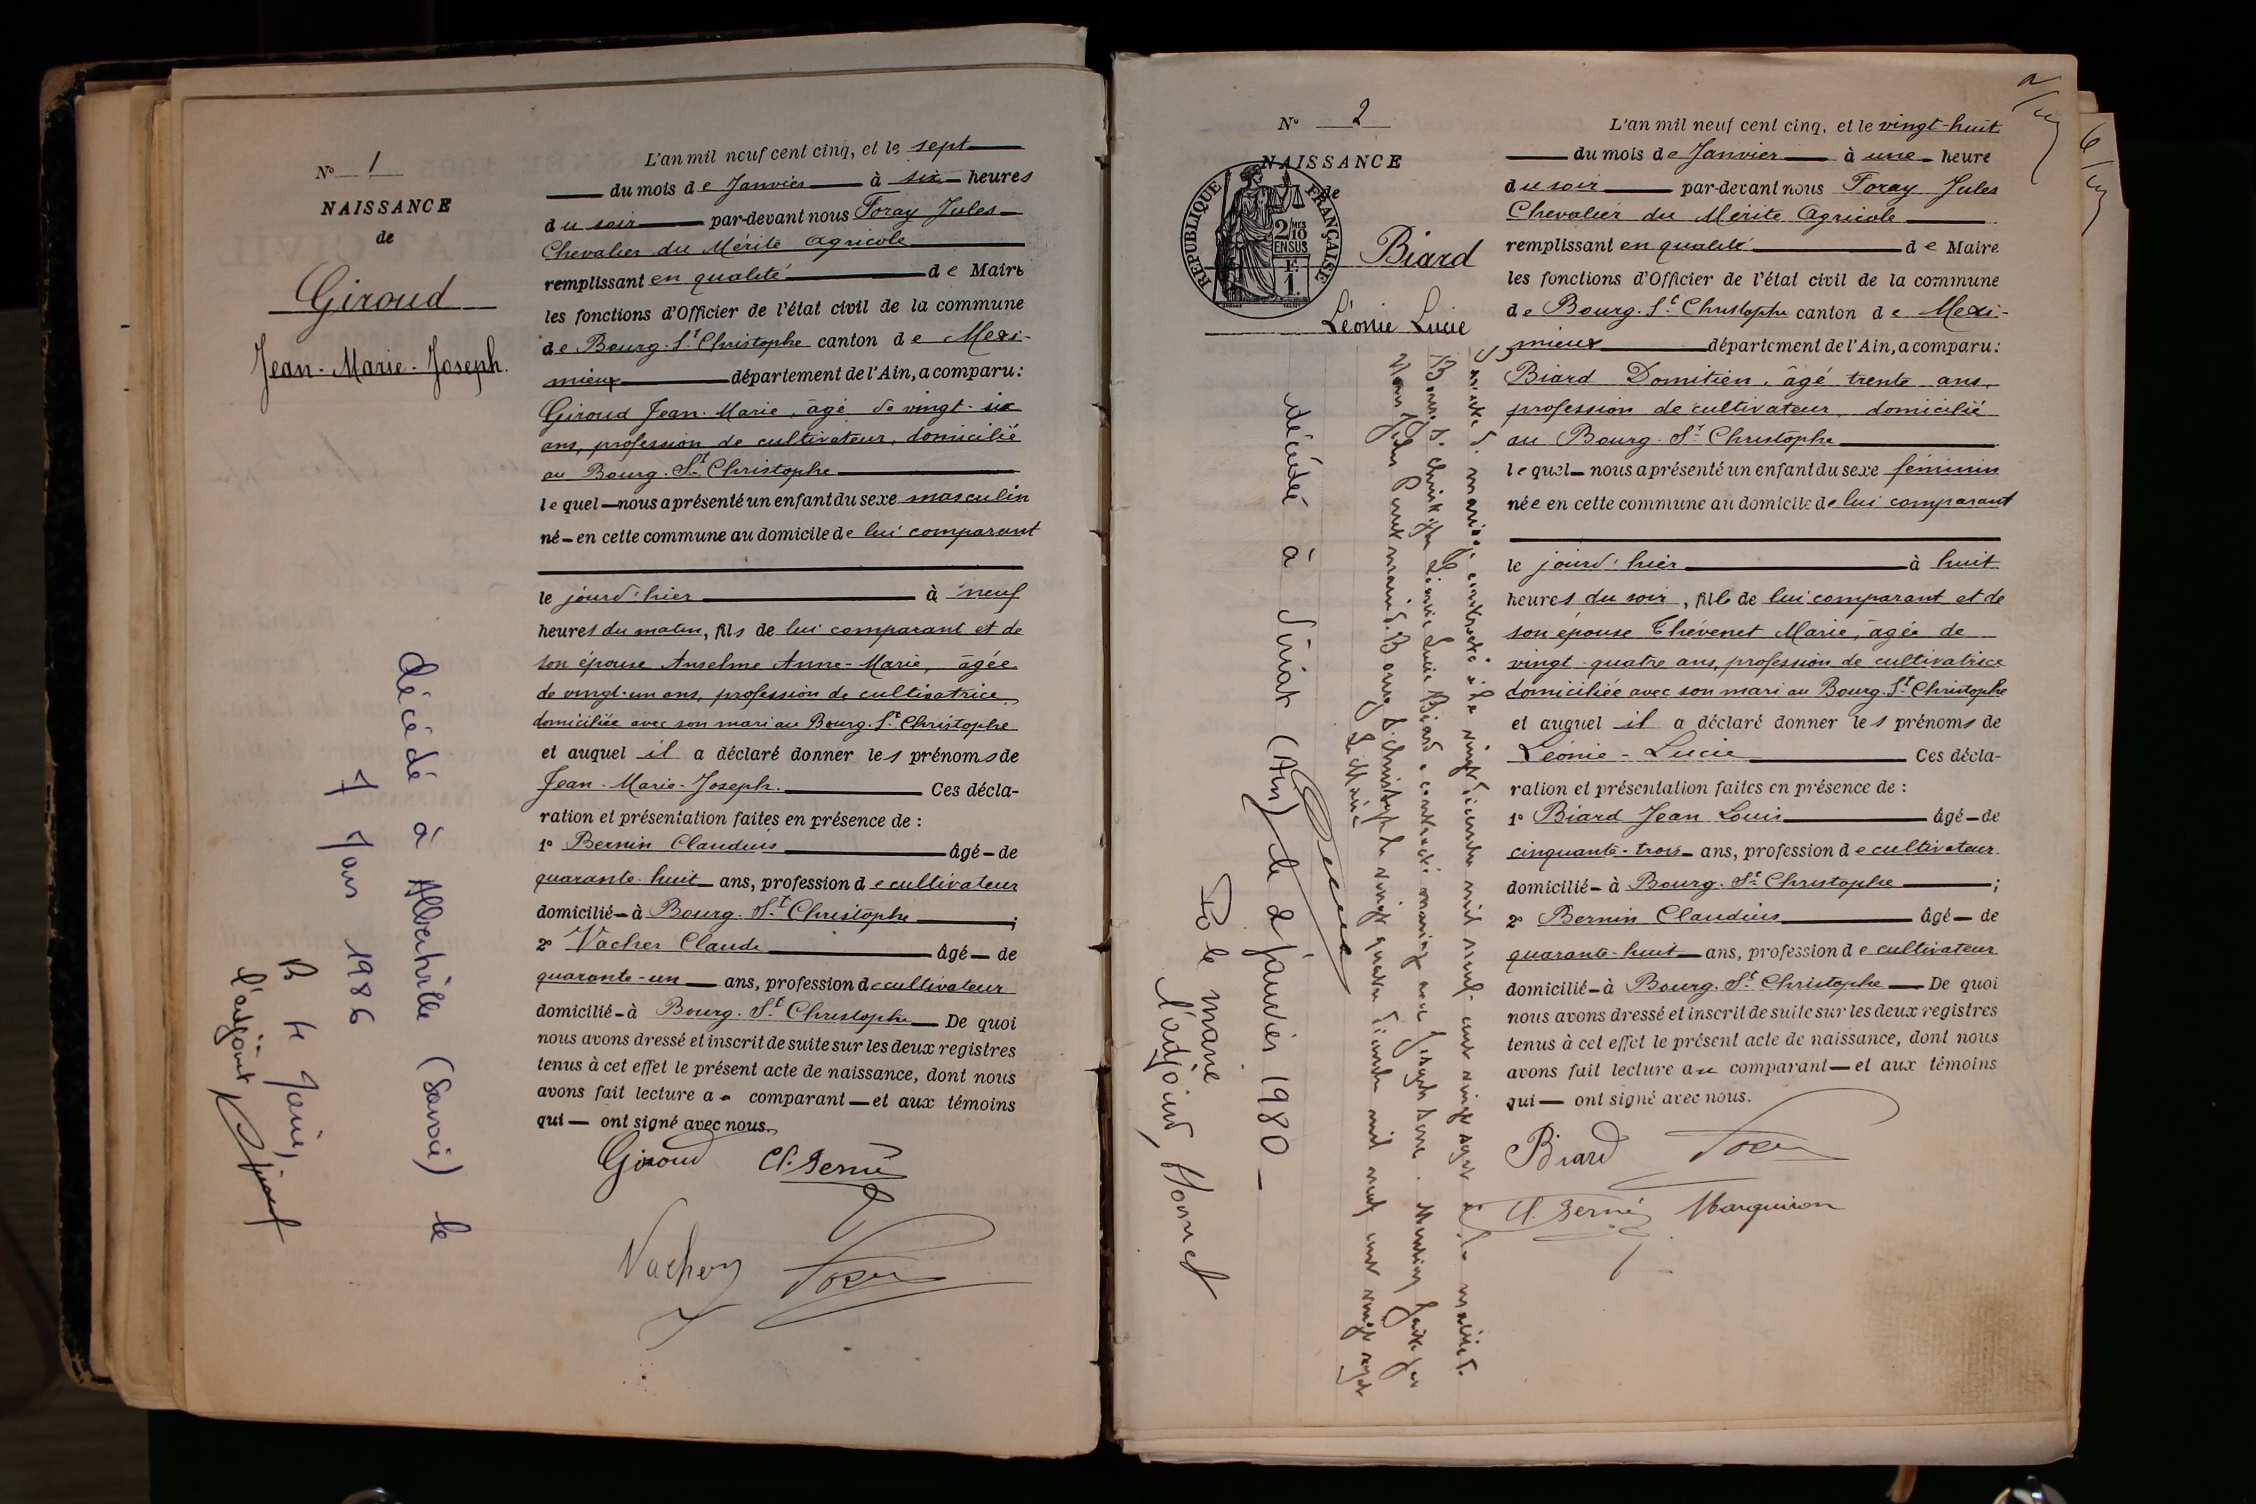 N° 1
NAISSANCE
de
Giroud
Jean-Marie-Joseph.
L'an mil neuf cent cinq, et le sept
du mois de Janvier à six heures
du soir par-devant nous Foray Jules
Chevalier du Mérite Agricole
remplissant en qualité de Maire
les fonctions d'Officier de l'état civil de la commune
de Bourg-St Christophe canton de Mexi-
mieux département de l'Ain, a comparu:
Giroud Jean-Marie, âgé de vingt-six
ans, profession de cultivateur, domicilié
au Bourg-St Christophe
lequel nous a présenté un enfant du sexe masculin
né en cette commune au domicile de lui comparant
le jourd'hier à neuf
heures du matin, fils de lui comparant et de
son épouse Anselme Anne-Marie, âgée
de vingt-un ans, profession de cultivatrice
domiciliée avec son mari au Bourg-St Christophe
et auquel il a déclaré donner les prénoms de
Jean-Marie-Joseph. Ces décla-
ration et présentation faites en présence de :
1° Bernin Claudius âgé de
quarante-huit ans, profession de cultivateur
domicilié à Bourg-St Christophe ;
2° Vacher Claude âgé de
quarante-un ans, profession de cultivateur
domicilié à Bourg-St Christophe De quoi
nous avons dressé et inscrit de suite sur les deux registres
tenus à cet effet le présent acte de naissance, dont nous
avons fait lecture au comparant et aux témoins
qui ont signé avec nous.
Giroud Cl. Bernin
Vacher Foray
décédé à Albertville (Savoie) le
7 Mars 1986
l'adjoint
N° 2
NAISSANCE
de
RÉPUBLIQUE FRANÇAISE
2/10
EN SUS
1 F.
Biard
Léonie Lucie
L'an mil neuf cent cinq, et le vingt-huit
du mois de Janvier à une heure
du soir par-devant nous Foray Jules
Chevalier du Mérite Agricole
remplissant en qualité de Maire
les fonctions d'Officier de l'état civil de la commune
de Bourg-St Christophe canton de Mexi-
mieux département de l'Ain, a comparu:
Biard Domitien, âgé trente ans,
profession de cultivateur, domicilié
au Bourg-St Christophe
lequel nous a présenté un enfant du sexe féminin
née en cette commune au domicile de lui comparant
le jourd'hier à huit
heures du soir, fille de lui comparant et de
son épouse Thévenet Marie, âgée de
vingt-quatre ans, profession de cultivatrice
domiciliée avec son mari au Bourg-St Christophe
et auquel il a déclaré donner les prénoms de
Léonie-Lucie Ces décla-
ration et présentation faites en présence de :
1° Biard Jean Louis âgé de
cinquante-trois ans, profession de cultivateur
domicilié à Bourg-St Christophe ;
2° Bernin Claudius âgé de
quarante-huit ans, profession de cultivateur
domicilié à Bourg-St Christophe De quoi
nous avons dressé et inscrit de suite sur les deux registres
tenus à cet effet le présent acte de naissance, dont nous
avons fait lecture au comparant et aux témoins
qui ont signé avec nous.
Biard Foray
Cl. Bernin Marguiron
mariage contracté à la vingt décembre mil neuf cent vingt sept à la
Bourg St Christophe Léonie Lucie Biard a contracté mariage avec Joseph Mention faite par
Nous Bourg St Christophe le vingt quatre décembre mil neuf cent vingt sept
Le Maire
décédée à Viriat (Ain) le 2 janvier 1980
Po le maire
l'adjoint,